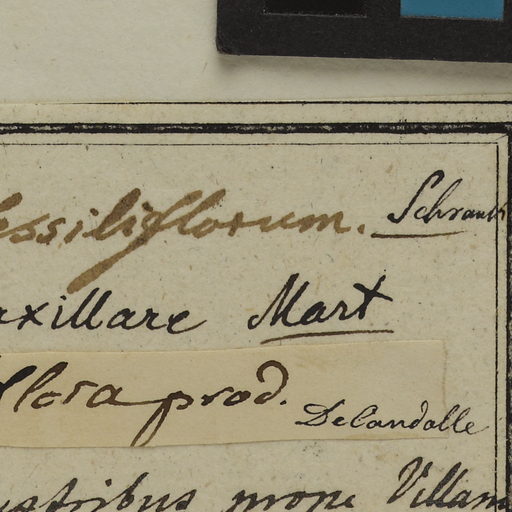 essiliflorum. Schrank
axillare Mart
flora prod. DeCandolle
ustribus prope Villam